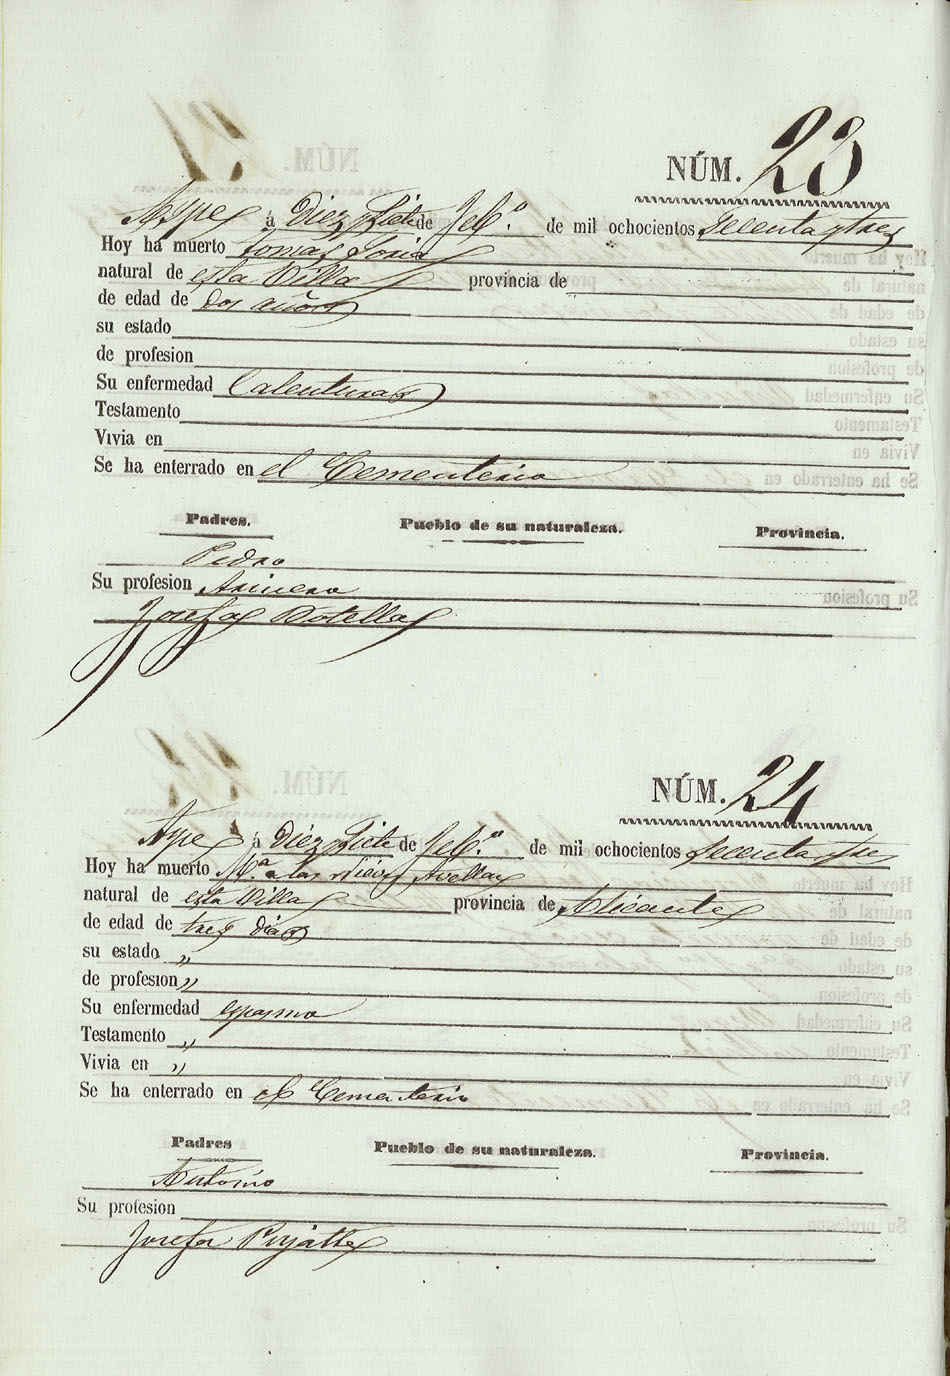 NÚM. 23
Aspe á Diez y Siete de Feb.º de mil ochocientos setenta y tres
Hoy ha muerto Tomas Soria
natural de esta Villa provincia de
de edad de dos años
su estado
de profesion
Su enfermedad Calenturas
Testamento
Vivia en
Se ha enterrado en el Cementerio
Padres. Pueblo de su naturaleza. Provincia.
Pedro
Su profesion Arriero
Josefa Botella
NÚM. 24
Aspe á Diez y Siete de Feb.º de mil ochocientos setenta y tres
Hoy ha muerto M.ª de las Nieves Avellan
natural de esta Villa provincia de Alicante
de edad de tres dias
su estado „
de profesion „
Su enfermedad espasmo
Testamento „
Vivia en „
Se ha enterrado en el Cementerio
Padres Pueblo de su naturaleza. Provincia.
Antonio
Su profesion
Josefa